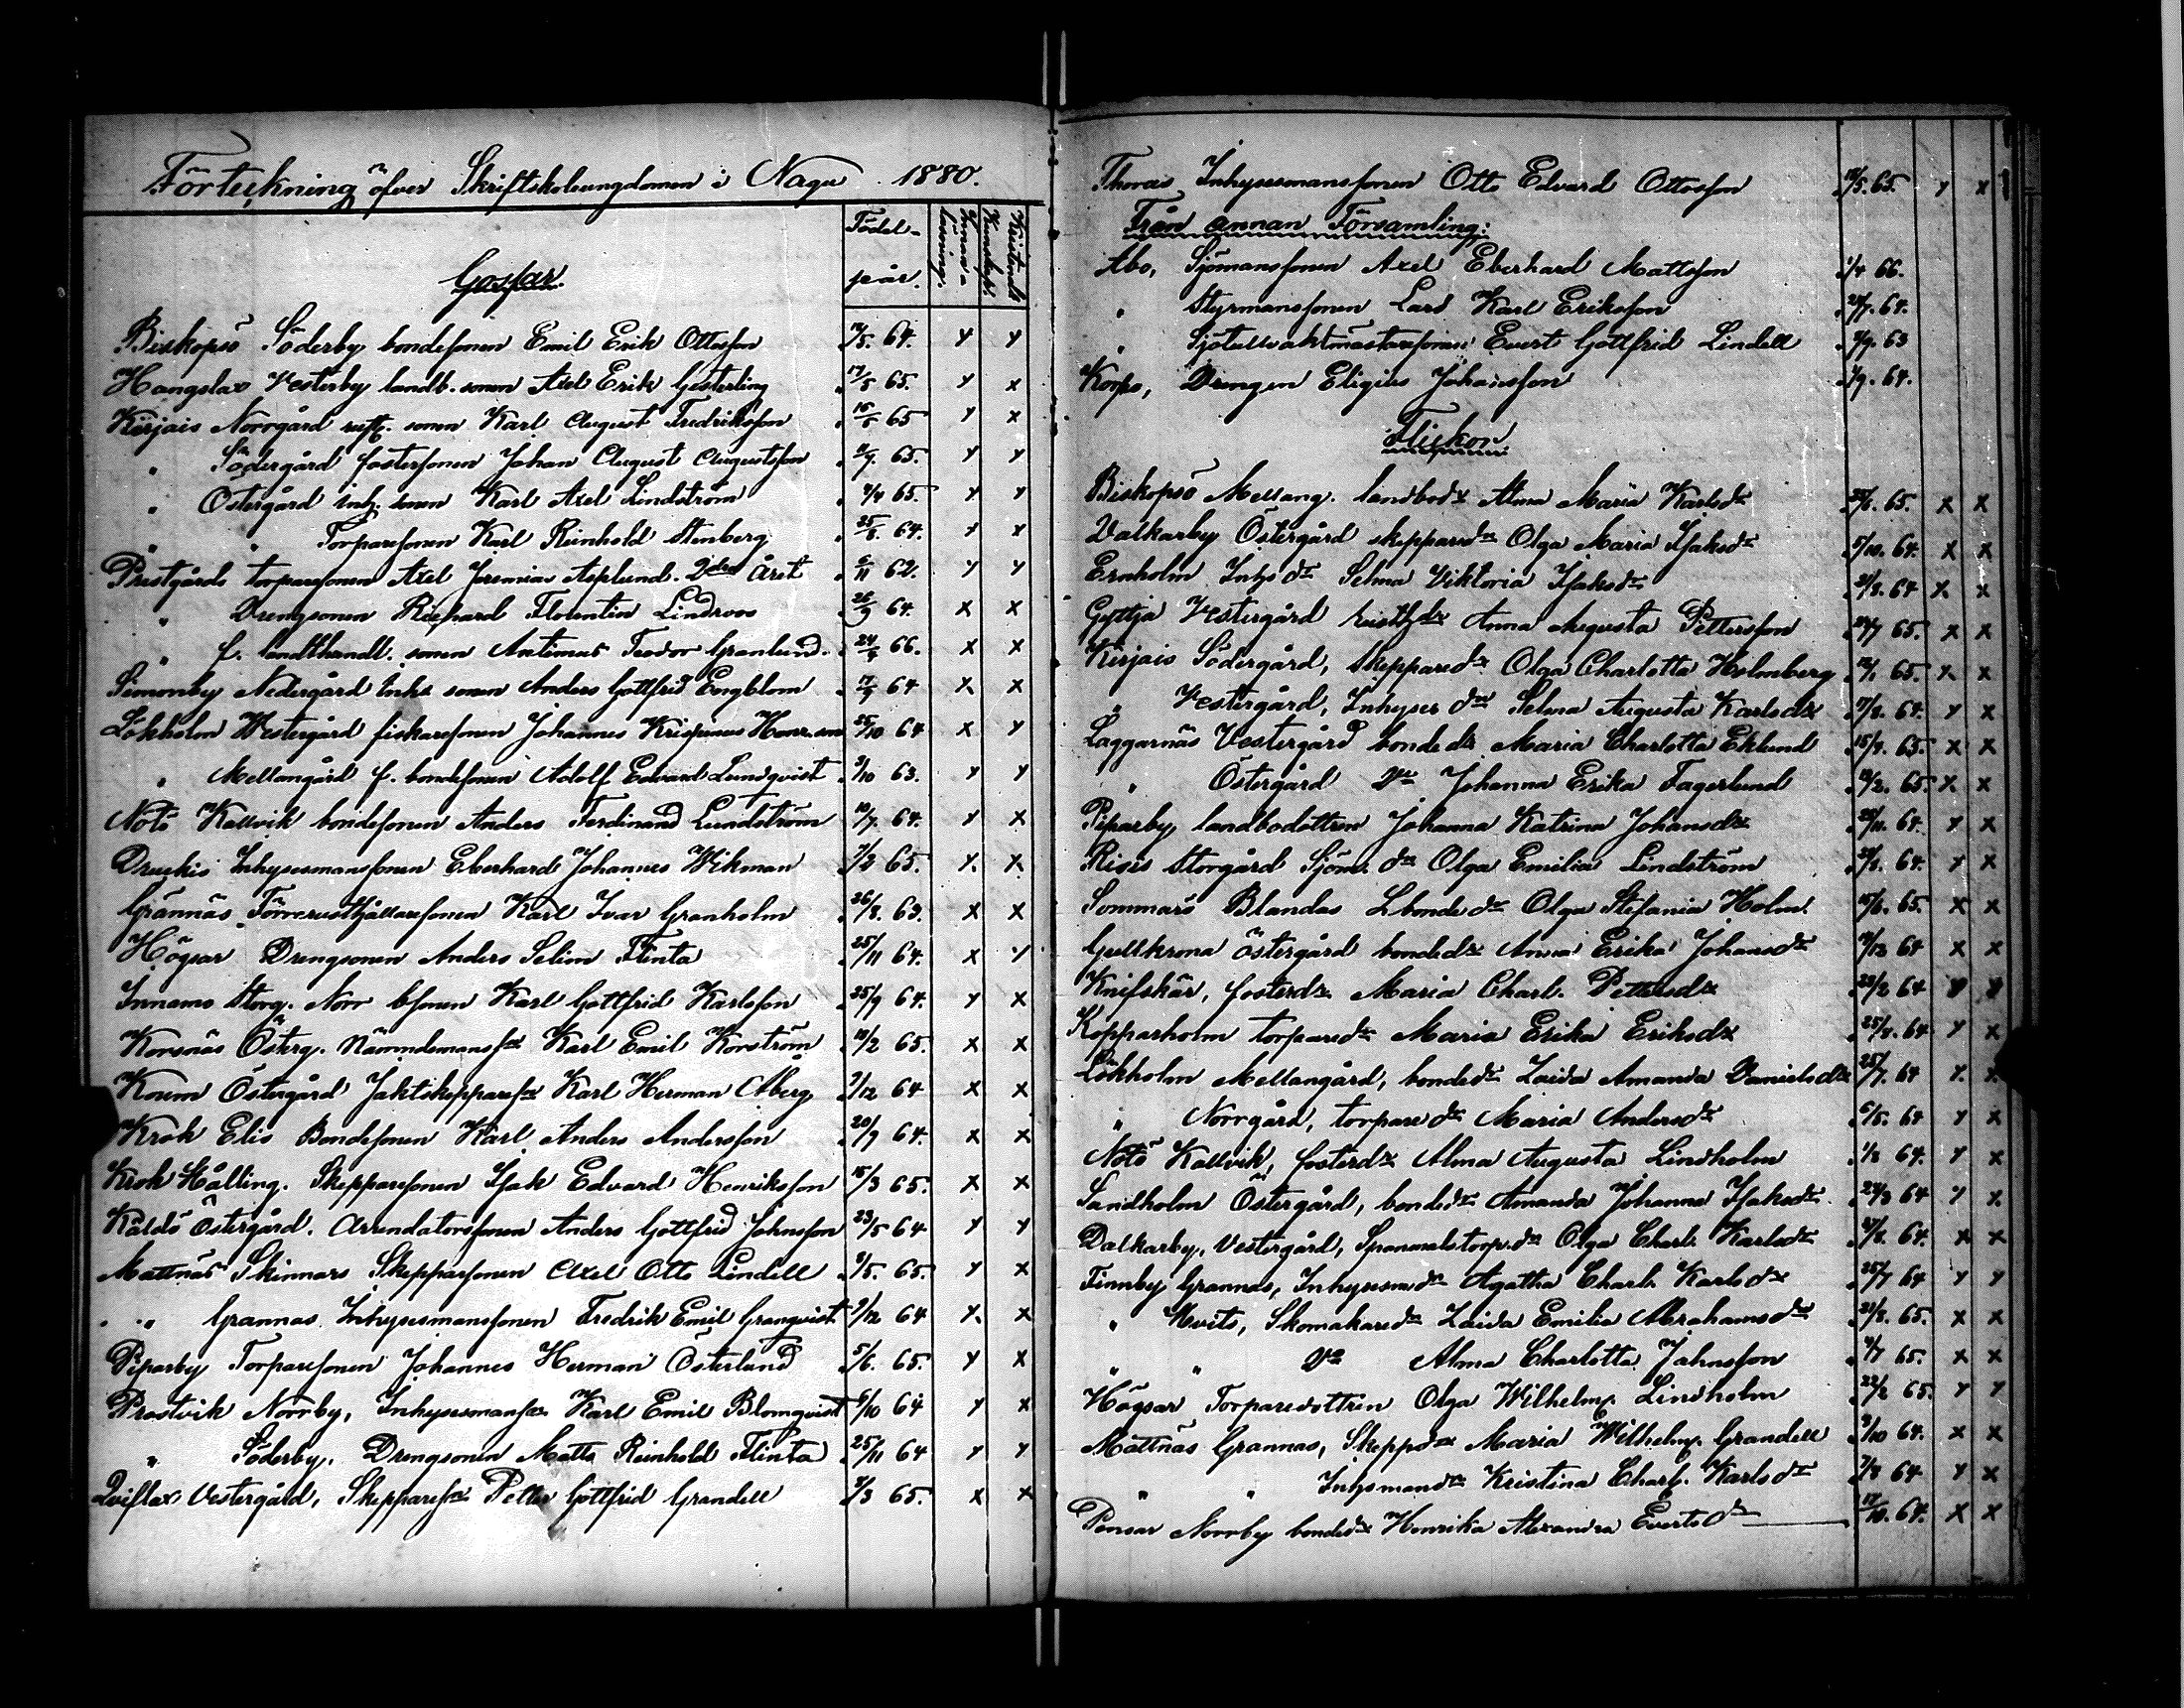 Förteckning öfver Skriftskoleungdomen i Nagu 1880.
Födelseår. Innanläsning. Kristends Kunskap.
Gossar.
Biskopsö Söderby bondesonen Emil Erik Ottosson 17/5. 64. x x
Hangslax Vesterby landb. sonen Axel Erik Gesterling 17/5 65. x x
Kirjais Norrgård rusth. sonen Karl August Fredriksson 15/5 65 x x
" Södergård fostersonen Johan August Augustsson 65. x x
" Östergård inh. sonen Karl Axel Lindström 4/4 65. x x
" " Torparesonen Karl Reinhold Stenberg 25/8 64. x x
Prestgårds torparesonen Axel Jeremias Asplund. 2dra Året 6/11 62. x x
" Drengsonen Richard Florentin Lindroos 26/9 64. x x
" f. landthandl. sonen Antimus Teodor Granlund. 66. x x
Simonby Nedergård Inhs sonen Anders Gottfrid Engblom 64 x x
Lökholm Westergård fiskaresonen Johannes Krispinus Henr.son 25/10 64 x x
" Mellangård f. bondesonen Adolf Edvard Lundqvist 3/10 63. x x
Nötö Kallvik bondesonen Anders Ferdinand Lundström 10/7. 64. x x
Druckis Inhysesmanssonen Eberhard Johannes Wikman 65. x x
Grännäs Förrerusthållaresonen Karl Ivar Granholm 26/8. 63. x x
Högsar Drengsonen Anders Selim Flinta 25/11 64. x x
Innamo Storg. Norr bsonen Karl Gottfrid Karlsson 25/9 64. x x
Korsnäs Österg. Nämndemanssn Karl Emil Korström 10/2 65. x x
Krum Östergård Jaktskepparesn Karl Herman Åberg 7/12 64 x x
Krok Elis Bondesonen Karl Anders Andersson 20/9 64. x x
Krok Hålling. Skepparesonen Isak Edvard Henriksson 15/3 65. x x
Käldö Östergård. Arrendatorssonen Anders Gottfrid Johnsson 23/5 64 x x
Mattnäs Skinnars Skepparesonen Axel Otto Lindell 65. x x
" Grannas Inhysesmanssonen Fredrik Emil Granqvist 9/12 64 x x
Piparby Torparesonen Johannes Herman Österlund 5/6. 65. x x
Prostvik Norrby, Inhysesmanssn Karl Emil Blomqvist 6/10 64 x x
" Söderby. Drengsonen Matts Reinhold Flinta 25/11 64 x x
Qviflax Vestergård, Skepparesn Petter Gottfrid Grandell 65. x x
Thoras Inhysesmanssonen Otto Edvard Ottosson 18/5. 65. x x
Från annan Församling:
Åbo, Sjömanssonen Axel Eberhard Mattsson 1/4 66.
" Styrmanssonen Lars Karl Eriksson 24/7. 64.
" Sjötullvaktmästaresonen Evert Gottfrid Lindell 63
Korpo, Drengen Eligius Johansson 1/9. 64.
Flickor
Biskopsö Mellang. landbodr Alma Maria Karlsdr 65. x x
Dalkarby Östergård skepparedr Olga Maria Isaksdr 5/10. 64. x x
Ernholm Inhsdr Selma Viktoria Isaksdr 64 x x
Gyttja Vestergård rusthdr Anna Augusta Pettersson 65. x x
Kirjais Södergård, Skepparedr Olga Charlotta Holmberg 12/1 65. x x
" Vestergård, Inhysesdr Selma Augusta Karlsdr 17/8. 64. x x
Laggarnäs Vestergård bondedr Maria Charlotta Eklund 65. x x
" Östergård Do Johanna Erika Fagerlund 65. x x
Piparby landbodottren Johanna Katrina Johansdr 64. x x
Risis Storgård Sjöm. dr Olga Emilia Lindström 64. x x
Sommarö Blandas Lbondedr Olga Stefania Holm. 15/6. 65. x x
Gullkrona Östergård bondedr Anna Erika Johansdr 64 x x
Knifskär, fosterdr Maria Charl. Pettersdr 23/2 64 x x
Kopparholm torparedr Maria Erika Eriksdr 25/8. 64 x x
Lökholm Mellangård, bondedr Zaida Amanda Danielsdr 25/7. 64 x x
" Norrgård, torparedr Maria Andersdr 6/5. 64 x x
Nötö Kallvik, fosterdr Alma Augusta Lindholm 1/8 64. x x
Sandholm Östergård, bondedr Amanda Johanna Isaksdr. 64 x x
Dalkarby, Vestergård, Spanmalstorp.dr Olga Charl. Karlsdr 27/8. 64. x x
Finnby Grannas, Inhysesmdr Agatha Charl. Karlsdr 25/7 64 x x
" Hvits, Skomakaredr Zaida Emilia Abrahamsdr 65. x x
" " Do Alma Charlotta Johnsson 65. x x
Högsar Torparedottren Olga Wilhelm. Lindholm 22/2 65. x x
Mattnäs Grannas, Skeppdr Maria Wilhelm. Grandell 3/10 64. x x
" " Inhsmandr Kristina Charl. Karlsdr 7/8 64 x x
Pensar Norrby bondedr Henrika Alexandra Evertsdr 17/10. 64. x x